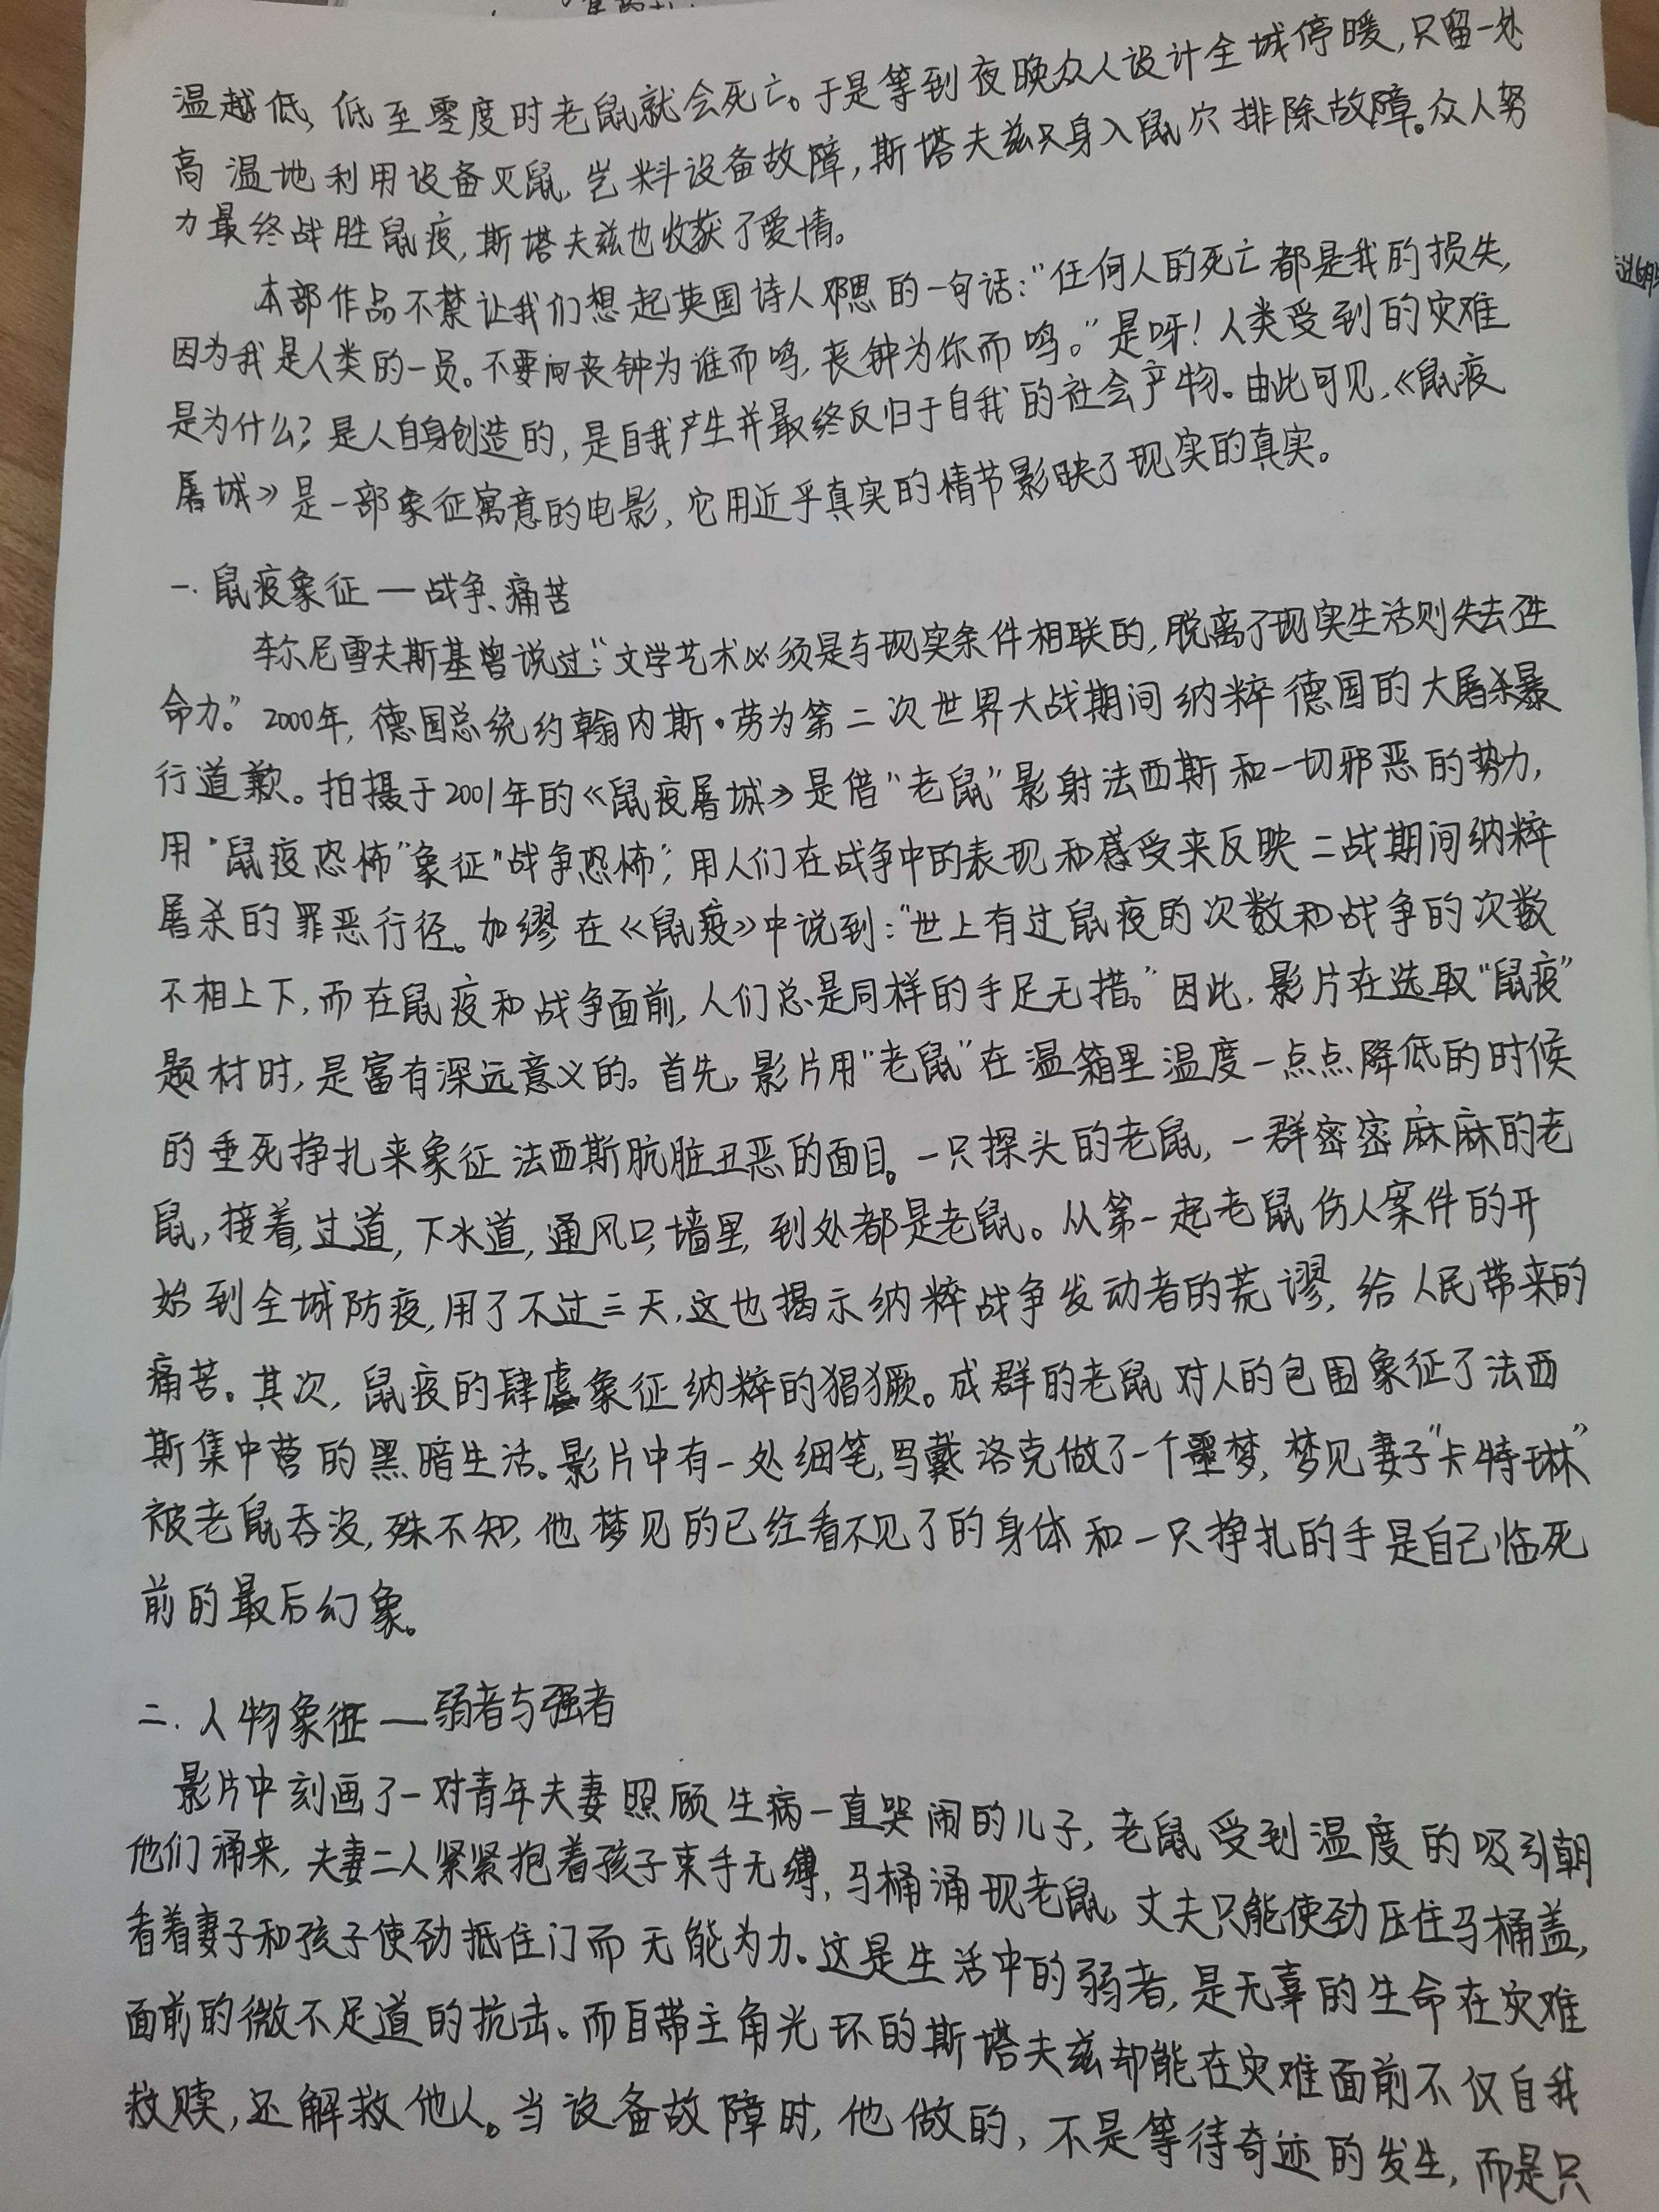 温越低,低至零度时老鼠就会死亡。于是等到夜晚众人设计全城停暖,只留一处
高温地利用设备灭鼠,岂料设备故障,斯塔夫兹只身入鼠穴排除故障。众人努
力最终战胜鼠疫,斯塔夫兹也收获了爱情。
本部作品不禁让我们想起英国诗人邓恩的一句话:“任何人的死亡都是我的损失,
因为我是人类的一员。不要问丧钟为谁而鸣,丧钟为你而鸣。”是呀!人类受到的灾难
是为什么?是人自身创造的,是自我产生并最终反归于自我的社会产物。由此可见,《鼠疫
屠城》是一部象征寓意的电影,它用近乎真实的情节影映了现实的真实。
一.鼠疫象征—战争、痛苦
车尔尼雪夫斯基曾说过:“文学艺术必须是与现实条件相联的,脱离了现实生活则失去生
命力。”2000年,德国总统约翰内斯·劳为第二次世界大战期间纳粹德国的大屠杀暴
行道歉。拍摄于2001年的《鼠疫屠城》是借“老鼠”影射法西斯和一切邪恶的势力,
用“鼠疫恐怖”象征“战争恐怖”,用人们在战争中的表现和感受来反映二战期间纳粹
屠杀的罪恶行径。加缪在《鼠疫》中说到:“世上有过鼠疫的次数和战争的次数
不相上下,而在鼠疫和战争面前,人们总是同样的手足无措。”因此,影片在选取“鼠疫”
题材时,是富有深远意义的。首先,影片用“老鼠”在温箱里温度一点点降低的时候
的垂死挣扎来象征法西斯肮脏丑恶的面目。一只探头的老鼠,一群密密麻麻的老
鼠,接着,过道,下水道,通风口,墙里,到处都是老鼠。从第一起老鼠伤人案件的开
始到全城防疫,用了不过三天,这也揭示纳粹战争发动者的荒谬,给人民带来的
痛苦。其次,鼠疫的肆虐象征纳粹的猖獗。成群的老鼠对人的包围象征了法西
斯集中营的黑暗生活。影片中有一处细笔,马戴洛克做了一个噩梦,梦见妻子“卡特琳”
被老鼠吞没,殊不知,他梦见的已经看不见了的身体和一只挣扎的手是自己临死
前的最后幻象。
二.人物象征—弱者与强者
影片中刻画了一对青年夫妻照顾生病一直哭闹的儿子,老鼠受到温度的吸引朝
他们涌来,夫妻二人紧紧抱着孩子束手无缚,马桶涌现老鼠,丈夫只能使劲压住马桶盖,
看着妻子和孩子使劲抵住门而无能为力。这是生活中的弱者,是无辜的生命在灾难
面前的微不足道的抗击。而自带主角光环的斯塔夫兹却能在灾难面前不仅自我
救赎,还解救他人。当设备故障时,他做的,不是等待奇迹的发生,而是只